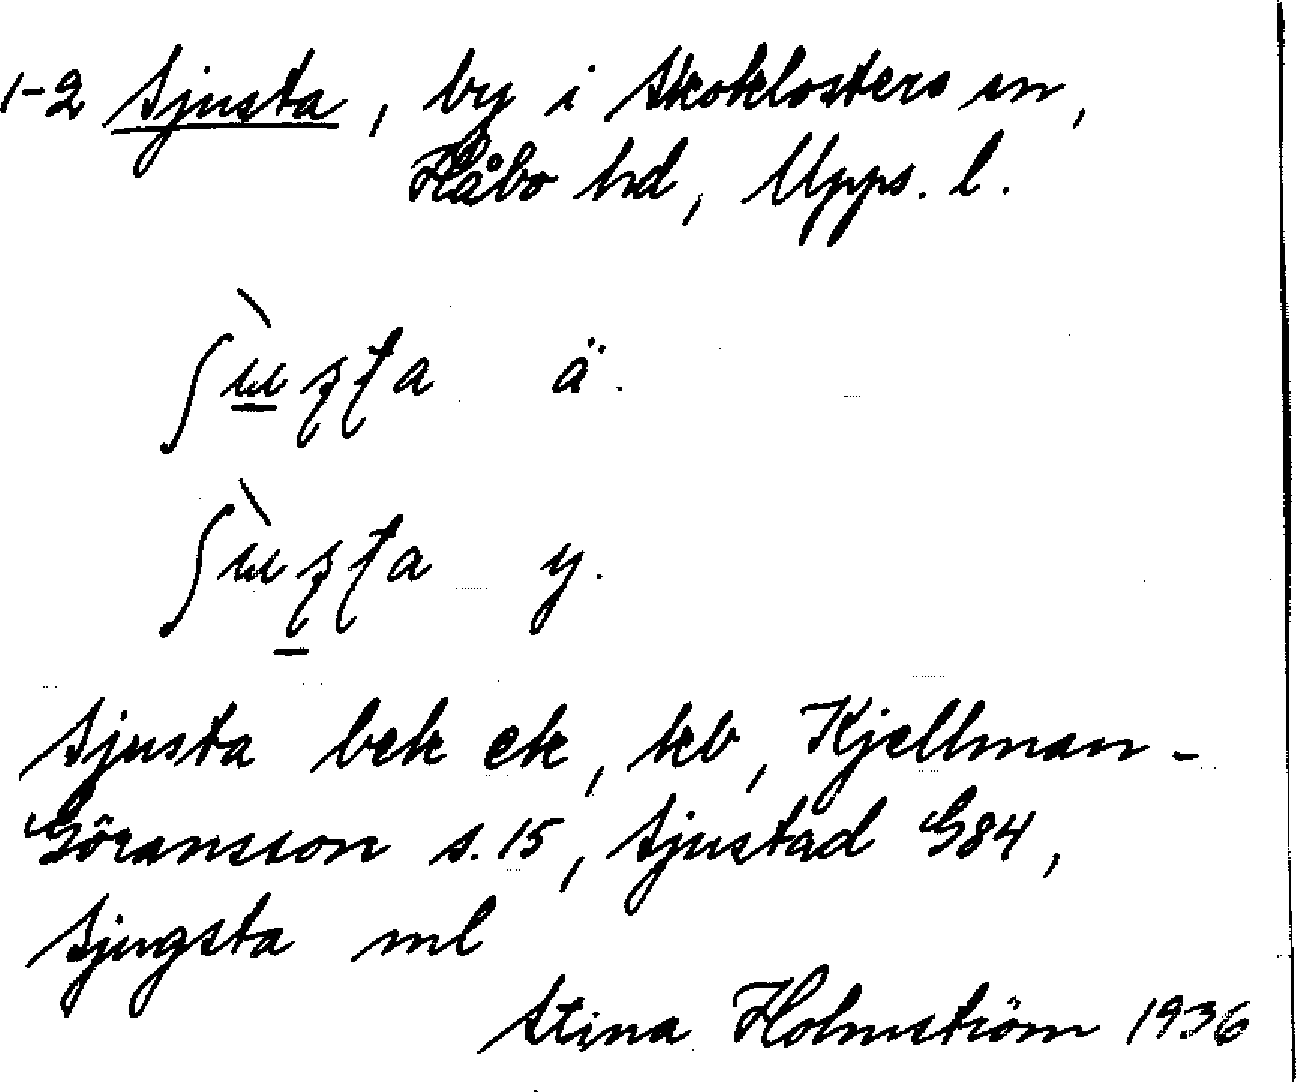 1-2 Sjusta, by i Skoklosters sn,
Håbo hd, Upps. l.
ä.
y.
Sjusta bek ek, kb, Kjellman-
Göransson s. 15, Sjustad G84,
Sjugsta ml
Stina Holmström 1936